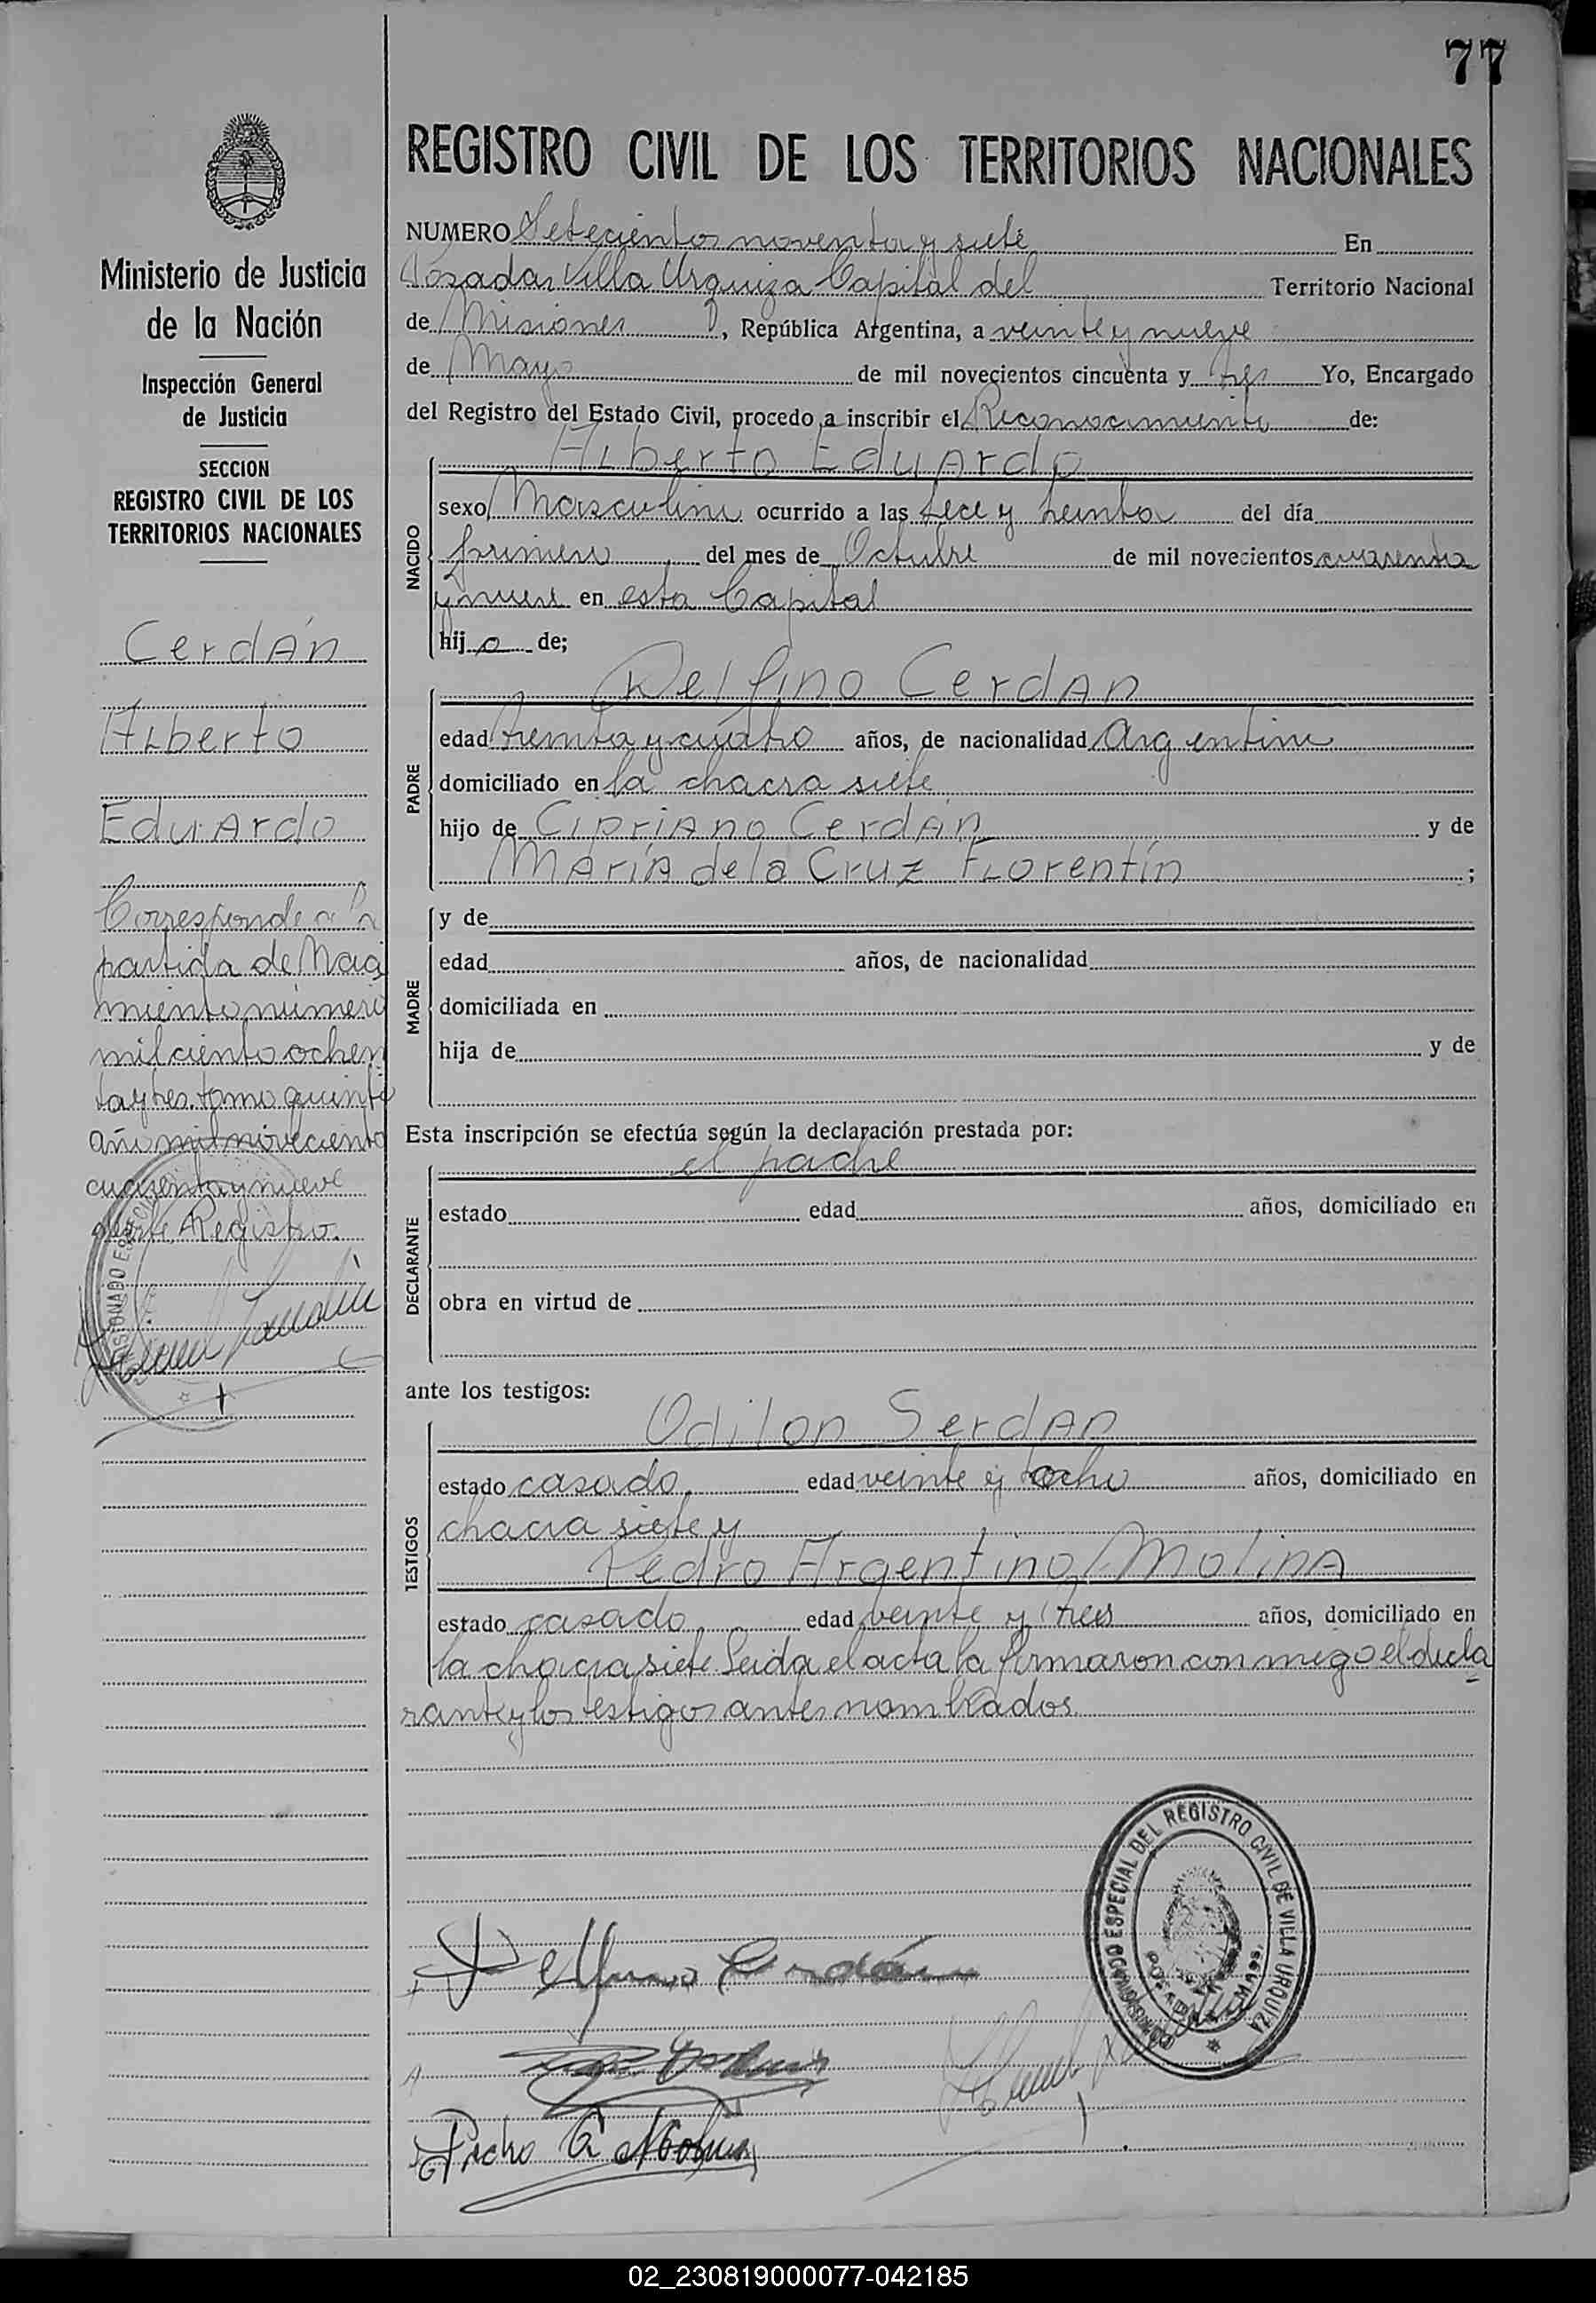 77
REGISTRO CIVIL DE LOS TERRITORIOS NACIONALES
Ministerio de Justicia
de la Nación
Inspección General
de Justicia
SECCION
REGISTRO CIVIL DE LOS
TERRITORIOS NACIONALES
Cerdán
Alberto
Eduardo
Corresponde a la
partida de Naci
miento número
mil ciento ochen
ta y tres. tomo quinto
año mil novecientos
cuarenta y nueve
de este Registro.
NUMERO Setecientos noventa y siete En
Posadas Villa Urquiza Capital del Territorio Nacional
de Misiones, República Argentina, a veinte y nueve
de Mayo de mil novecientos cincuenta y tres Yo, Encargado
del Registro del Estado Civil, procedo a inscribir el Reconocimiento de:
Alberto Eduardo
NACIDO
sexo Masculino ocurrido a las seis y treinta del día
primero del mes de Octubre de mil novecientos cuarenta
y nueve en esta Capital
hijo de;
Delfino Cerdan
PADRE
edad treinta y cuatro años, de nacionalidad Argentino
domiciliado en la chacra siete
hijo de Cipriano Cerdán y de
María de la Cruz Florentín ;
MADRE
y de
edad años, de nacionalidad
domiciliada en
hija de y de
Esta inscripción se efectúa según la declaración prestada por:
el padre
DECLARANTE
estado edad años, domiciliado en
obra en virtud de
ante los testigos:
Odilon Serdan
TESTIGOS
estado casado edad veinte y ocho años, domiciliado en
chacra siete y
Pedro Argentino Molina
estado casado edad veinte y tres años, domiciliado en
la chacra siete Leida el acta la firmaron con migo el decla
rante y los testigos antes nombrados
Delfino Cerdán
Pedro A Molina
COMISIONADO ESPECIAL DEL REGISTRO CIVIL DE VILLA URQUIZA
POSADAS MNES.
02_230819000077-042185